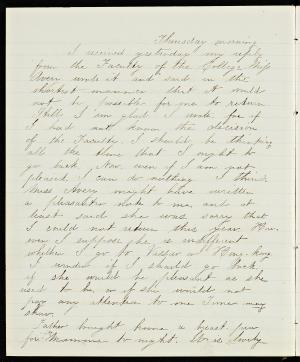 Thursday morning
I received yesterday my reply
from the Faculty of the College. Miss
Avery wrote it and said in the
shortest manner that it would
not be possible for me to return
Well, I am glad I wrote for if
I had not known the decision
of the Faculty, I should be thinking
all the time that I ought to
go back. Now even if I am not
pleased I can do nothing. I think
Miss Avery might have written
a pleasanter note to me, and at
least said she was sorry that
I could not return this year. How-
ever I suppose she is indifferent
whether I go to Vassar or Hong-kong
I wonder if I should go back
if she would be pleasant as she
used to be, or if she would not
pay any attention to me. Time may
show.
Father brought home a beast
for Mamma to night. It is lovely